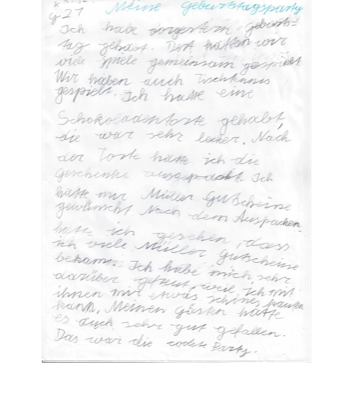 G 21 Meine Geburtstagsparty
Ich habe vorgestern Geburts-
tag gehabt. Dort hatten wir
viele Spiele gemeinsam gespielt
Wir haben auch Tischtennis
gespielt. Ich hatte eine
Schokoladentorte gehabt,
die war sehr lecker. Nach
der Torte hatte ich die
Geschenke ausgepackt Ich
hatte mir Müller Gutscheine
gewünscht Nach dem Auspacken
hatte ich gesehen, dass
ich viele Müller gutscheine
bekam. Ich habe mich sehr
darüber gefreut, weil ich mit
ihnen mir etwas schönes kaufen
kann. Meinen Gästen hatte
es auch sehr gut gefallen.
Das war die Party.